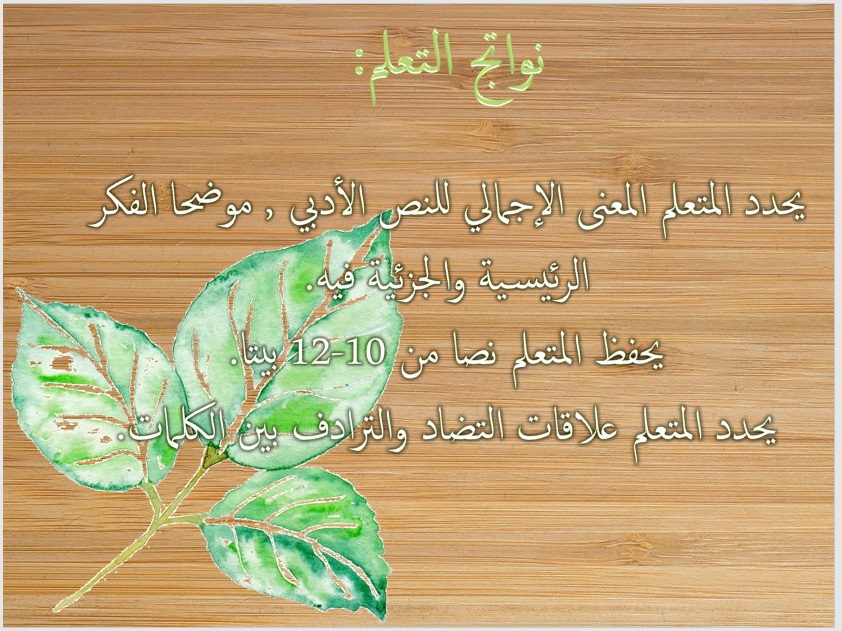 نواتج التعلم:
يحدد المتعلم المعنى الإجمالي للنص الأدبي , موضحا الفكر
الرئيسية والجزئية فيه.
يحفظ المتعلم نصا من 10-12 بيتا.
يحدد المتعلم علاقات التضاد والترادف بين الكلمات.